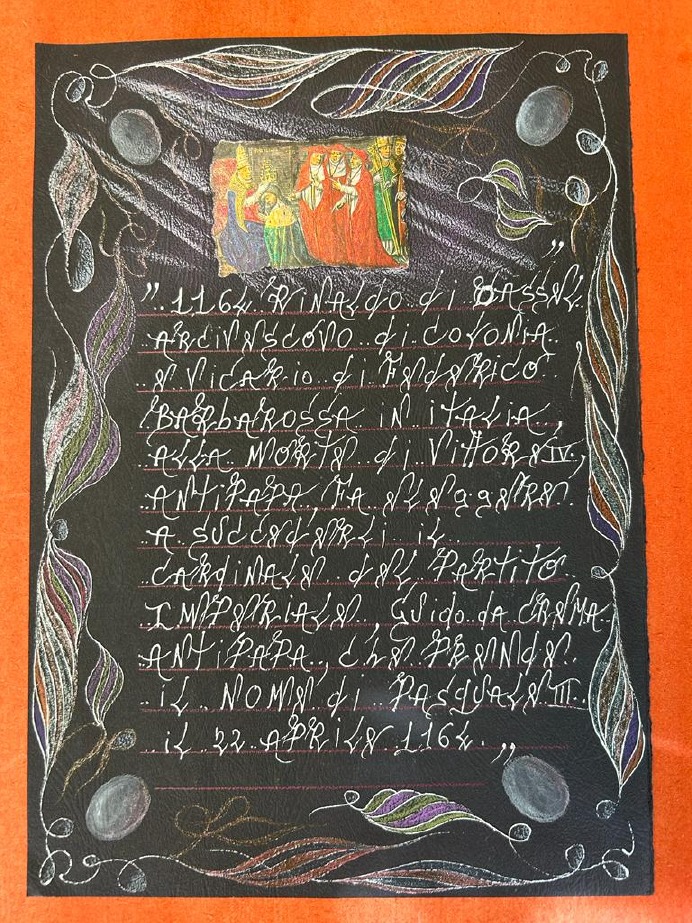 ". 1164. RINALDO di DASSEL
ARCIVESCOVO di COLONIA
E VICARIO di FEDERICO
BARBAROSSA IN ITALIA,
ALLA MORTE di VITTORE IV,
ANTIPAPA, FA ELEGGERE
A SUCCEDERLI IL
CARDINALE DEL PARTITO
IMPERIALE, GUIDO DA CREMA
ANTIPAPA, CHE PRENDE
IL NOME di PASQUALE III.
IL 22 APRILE 1164. „